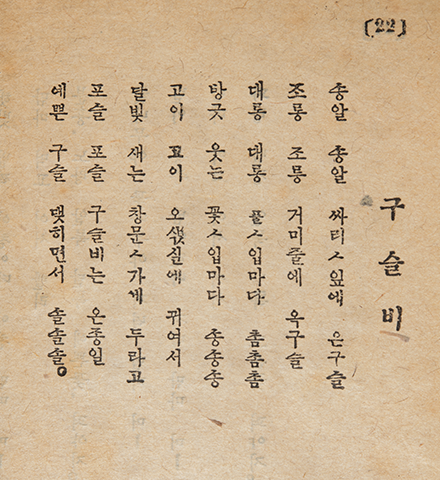 (22)
구슬비
송알 송알 싸리ㅅ잎에 은구슬
조롱 조롱 거미줄에 옥구슬
대롱 대롱 풀ㅅ입마다 촘촘촘
탕긋 웃는 꽃ㅅ입마다 송송송
고이 고이 오색실에 뀌여서
달빛 새는 창문ㅅ가에 두라고
포슬 포슬 구슬비는 온종일
예쁜 구슬 맺히면서 솔솔솔。